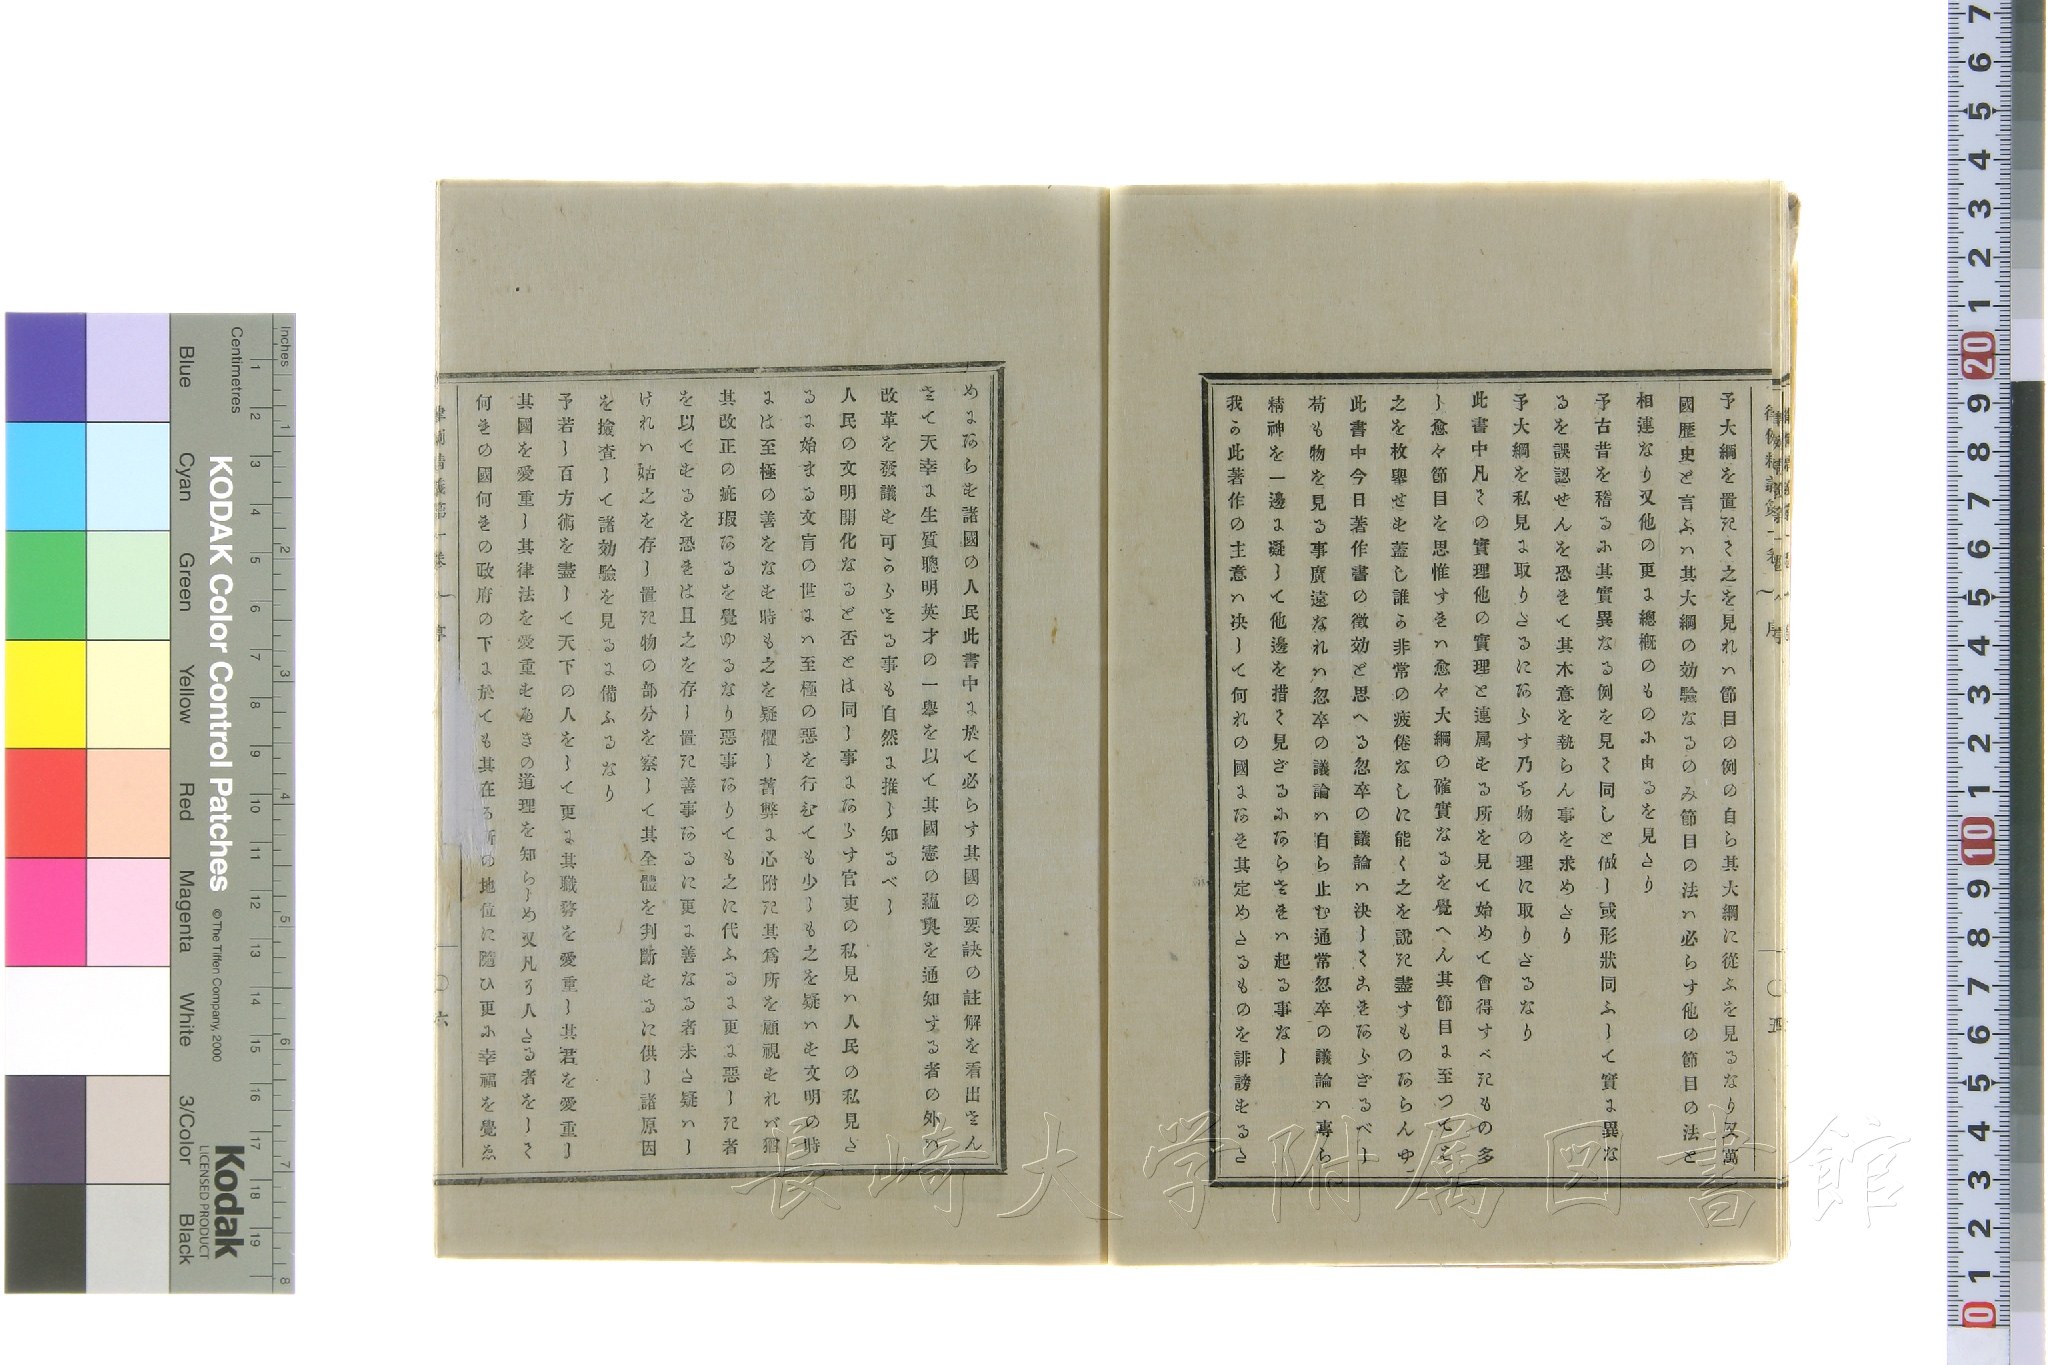 予大綱を置きて之を見れハ節目の例の自ら其大綱に從ふを見るなり又萬
國歴史と言ふハ其大綱の効驗なるのみ節目の法ハ必らす他の節目の法と
相連なり又他の更に總概のものに由るを見たり
予古昔を稽るに其實異なる例を見て同しと做し或形狀同ふして實に異な
るを誤認せんを恐れて其木意を執らん事を求めたり
予大綱を私見に取りたるにあらす乃ち物の理に取りたるなり
此書中凡ての實理他の實理と連属せる所を見て始めて會得すべきもの多
し愈々節目を思惟すれハ愈々大綱の確實なるを覺へん其節目に至つてハ
之を枚擧せす蓋し誰か非常の疲倦なしに能く之を說き盡すものあらんや
此書中今日著作書の徴効と思へる忽卒の議論ハ決してこれあらざるべし
苟も物を見る事廣遠なれハ忽卒の議論ハ自ら止む通常忽卒の議論ハ專ら
精神を一邊に凝して他邊を措て見ざるにあらされハ起る事なし
我か此著作の主意ハ决して何れの國にあれ其定めたるものを誹謗するた
めにあらす諸國の人民此書中に於て必らす其國の要訣の註解を看出さん
さて天幸に生質聰明英才の一擧を以て其國憲の蘊奧を通知する者の外ハ
改革を發議す可からさる事も自然に推し知るべし
人民の文明開化なると否とは同し事にあらす官吏の私見ハ人民の私見た
るに始まる文盲の世にハ至極の惡を行むても少しも之を疑ハす文明の時
には至極の善をなす時も之を疑懼し舊弊に心附き其爲所を顧視すれバ猶
其改正の疵瑕あるを覺ゆるなり惡事ありても之に代ふるに更に惡しき者
を以てするを恐れは且之を存し置き善事あるに更に善なる者未た疑ハし
けれハ姑之を存し置き物の部分を察して其全體を判斷するに供し諸原因
を撿査して諸効驗を見るに備ふるなり
予若し百方術を盡して天下の人をして更に其職務を愛重し其君を愛重し
其國を愛重し其律法を愛重すべきの道理を知らしめ又凡そ人たる者をして
何れの國何れの政府の下に於ても其在る所の地位に隨ひ更に幸福を覺ゑ
長崎大学附属図書館
KODAK Color Control Patches
© The Tiffen Company, 2000
Kodak
LICENSED PRODUCT
Inches
Centimetres
Blue
Cyan
Green
Yellow
Red
Magenta
White
3/Color
Black